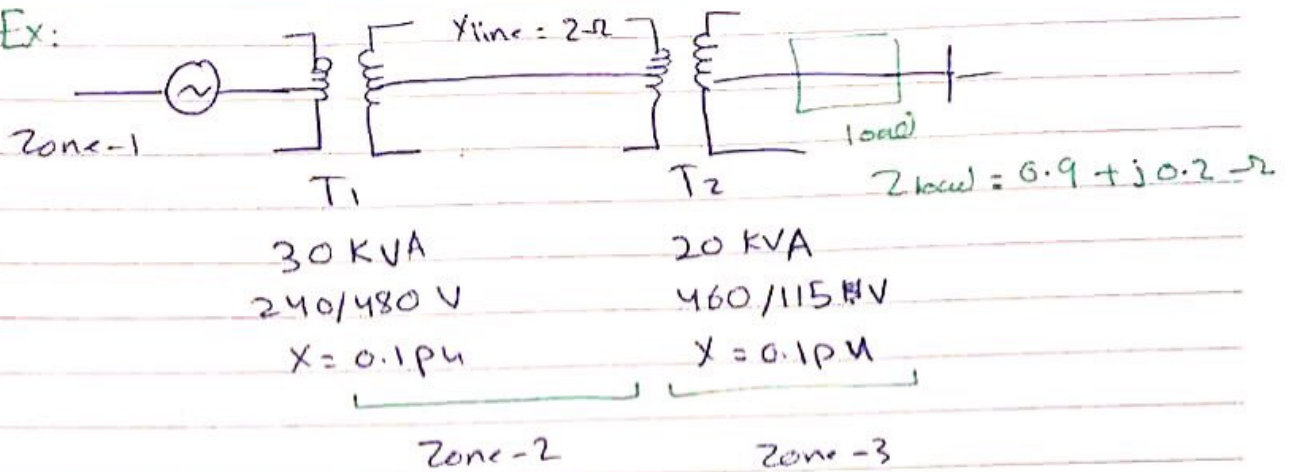 Ex:
Xline = 2Ω
Zone-1
load
T1 T2 Zload = 0.9 + j0.2 Ω
30 KVA 20 KVA
240/480 V 460/115 V
X = 0.1pu X = 0.1pu
Zone-2 Zone-3